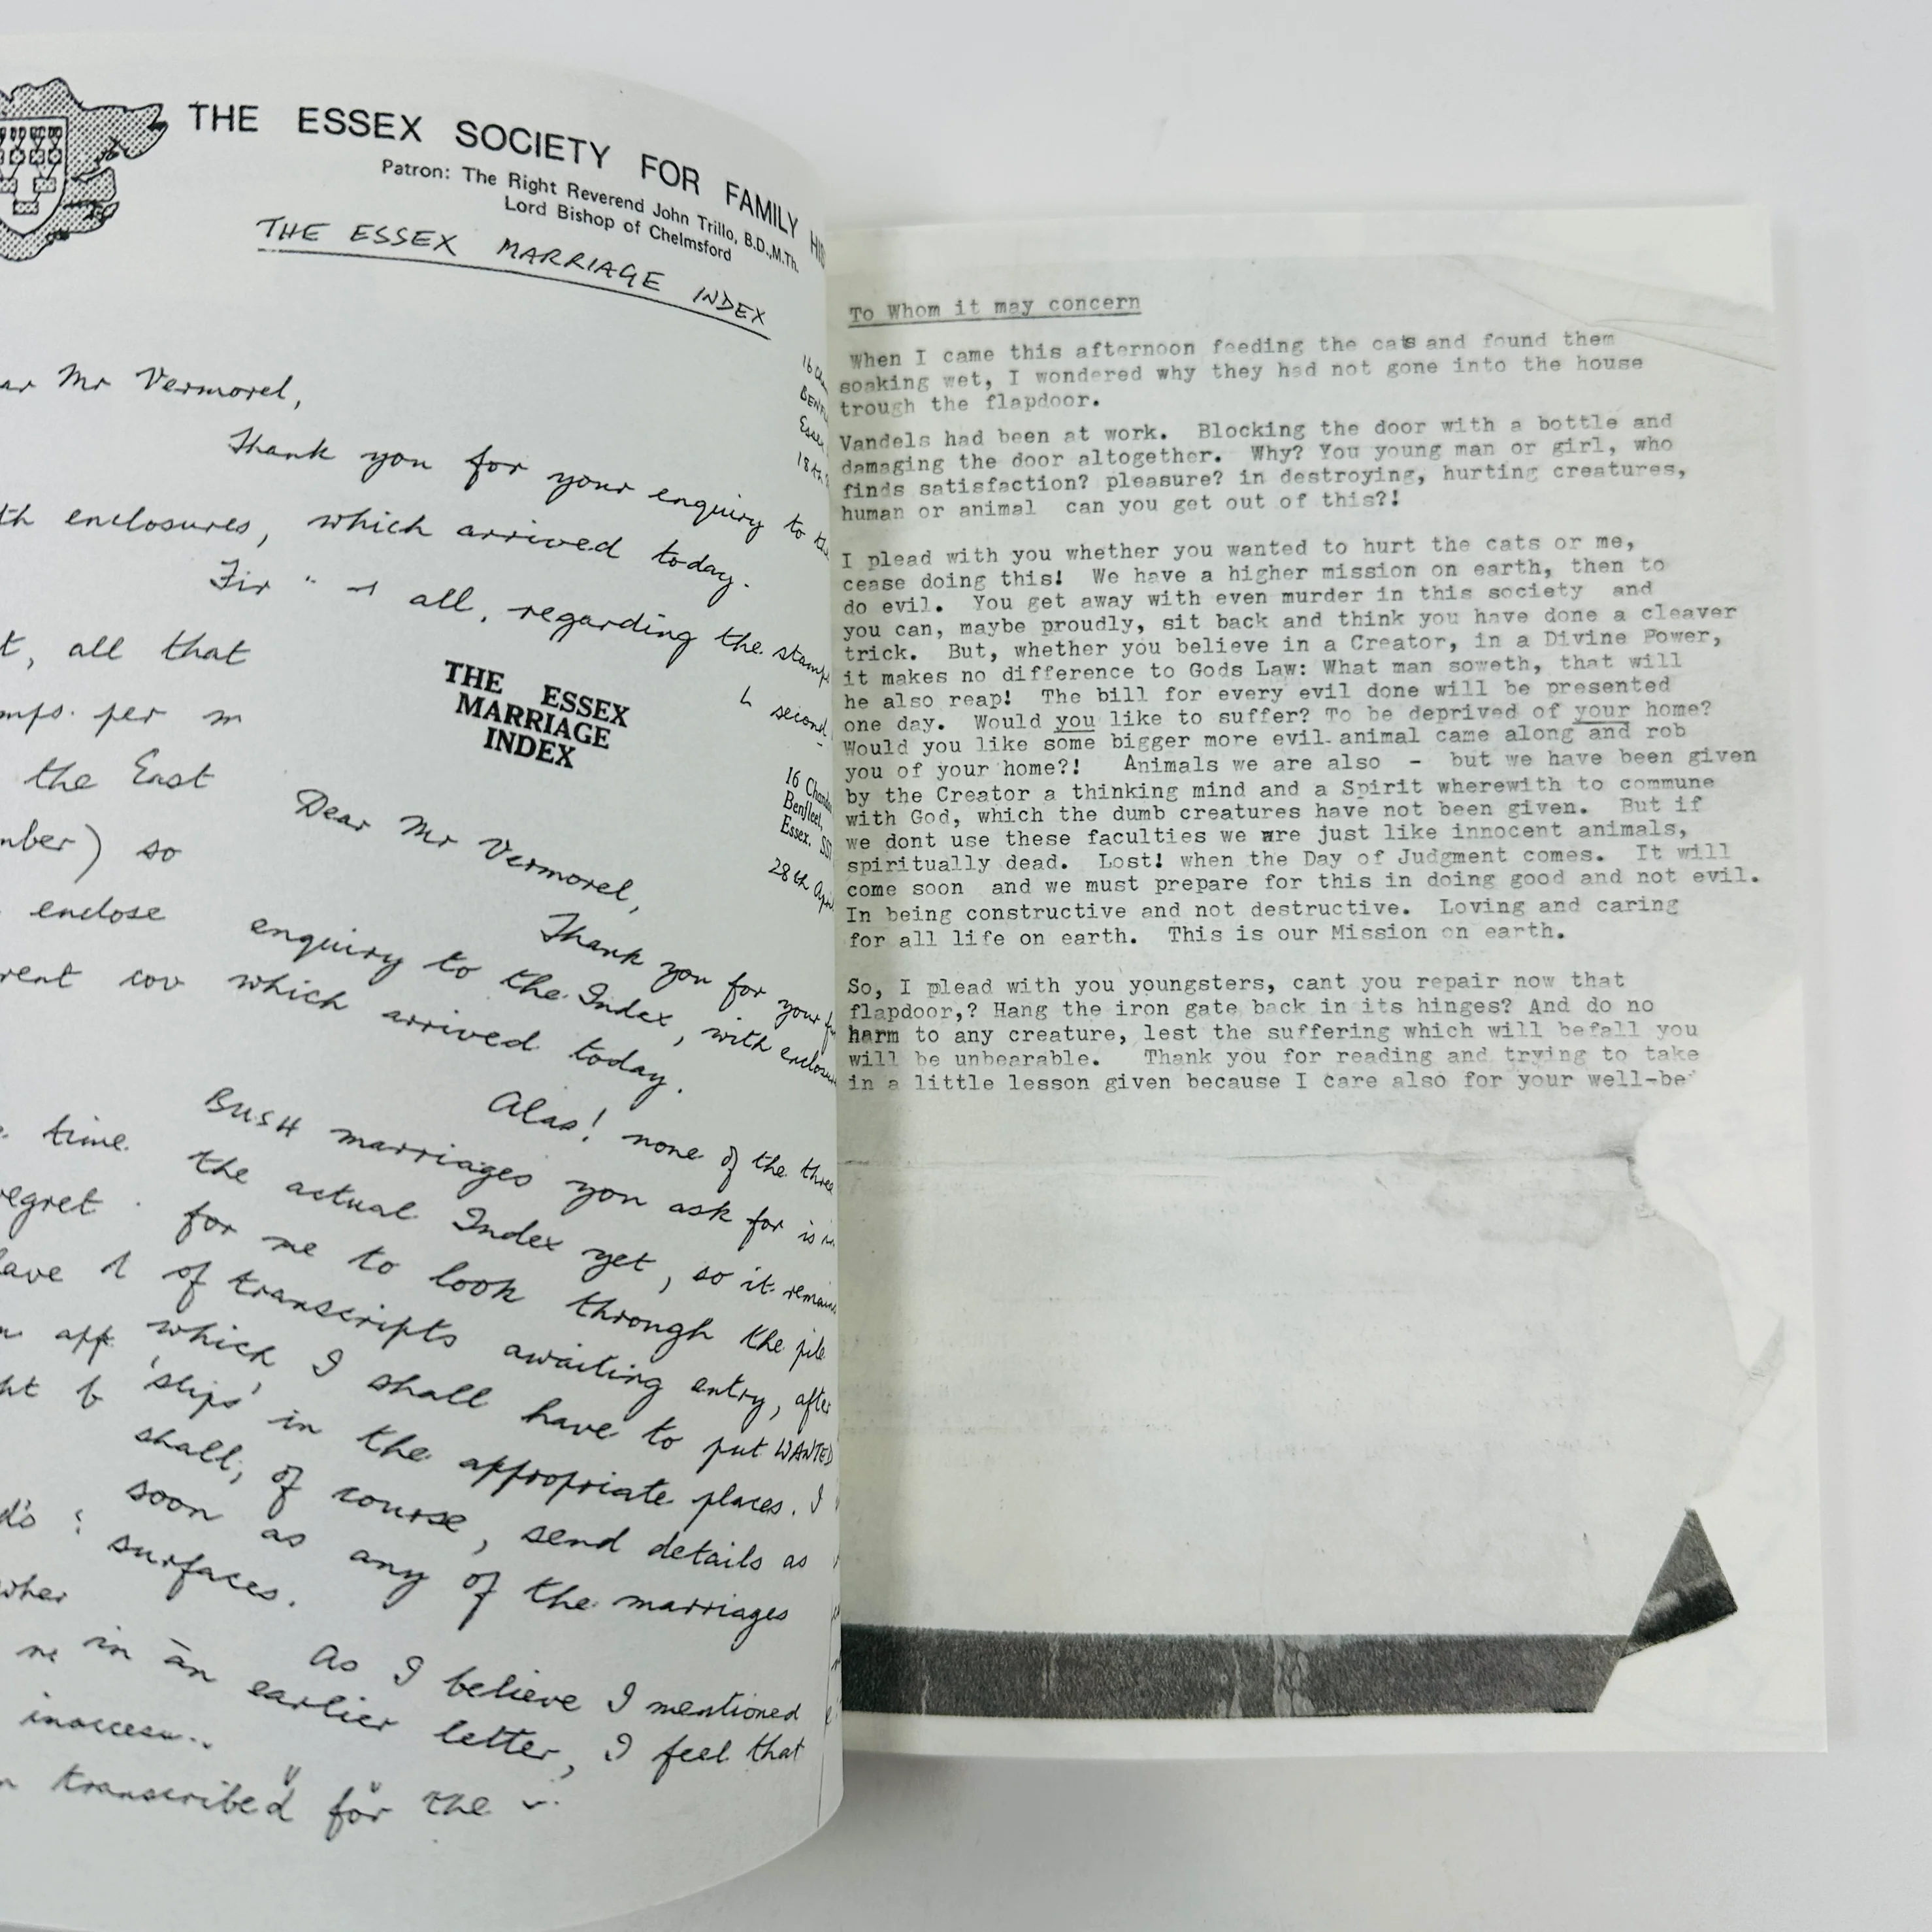 THE ESSEX SOCIETY FOR FAMILY
Patron: The Right Reverend John Trillo, B.D.,M.Th.
Lord Bishop of Chelmsford
THE ESSEX MARRIAGE INDEX
Mr Vermorel,
Thank you for your enquiry to
enclosures, which arrived today.
all, regarding the
all that
second
per
the East
so
enclose
THE ESSEX
MARRIAGE
INDEX
16
Benfleet,
Essex.
28th
Dear Mr Vermorel,
Thank you for your
enquiry to the Index, with
which arrived today.
Alas! none of the three
BUSH marriages you ask for is
the actual Index yet, so it
for me to look through the
of transcripts awaiting entry, after
which I shall have to put WANTED
'slips' in the appropriate places. I
shall, of course, send details as
soon as any of the marriages
surfaces.
As I believe I mentioned
in an earlier letter, I feel that
time
transcribed for the
To Whom it may concern
When I came this afternoon feeding the cats and found them
soaking wet, I wondered why they had not gone into the house
trough the flapdoor.
Vandels had been at work. Blocking the door with a bottle and
damaging the door altogether. Why? You young man or girl, who
finds satisfaction? pleasure? in destroying, hurting creatures,
human or animal can you get out of this?!
I plead with you whether you wanted to hurt the cats or me,
cease doing this! We have a higher mission on earth, then to
do evil. You get away with even murder in this society and
you can, maybe proudly, sit back and think you have done a cleaver
trick. But, whether you believe in a Creator, in a Divine Power,
it makes no difference to Gods Law: What man soweth, that will
he also reap! The bill for every evil done will be presented
one day. Would you like to suffer? To be deprived of your home?
Would you like some bigger more evil animal came along and rob
you of your home?! Animals we are also - but we have been given
by the Creator a thinking mind and a Spirit wherewith to commune
with God, which the dumb creatures have not been given. But if
we dont use these faculties we are just like innocent animals,
spiritually dead. Lost! when the Day of Judgment comes. It will
come soon and we must prepare for this in doing good and not evil.
In being constructive and not destructive. Loving and caring
for all life on earth. This is our Mission on earth.
So, I plead with you youngsters, cant you repair now that
flapdoor,? Hang the iron gate back in its hinges? And do no
harm to any creature, lest the suffering which will befall you
will be unbearable. Thank you for reading and trying to take
in a little lesson given because I care also for your well-be